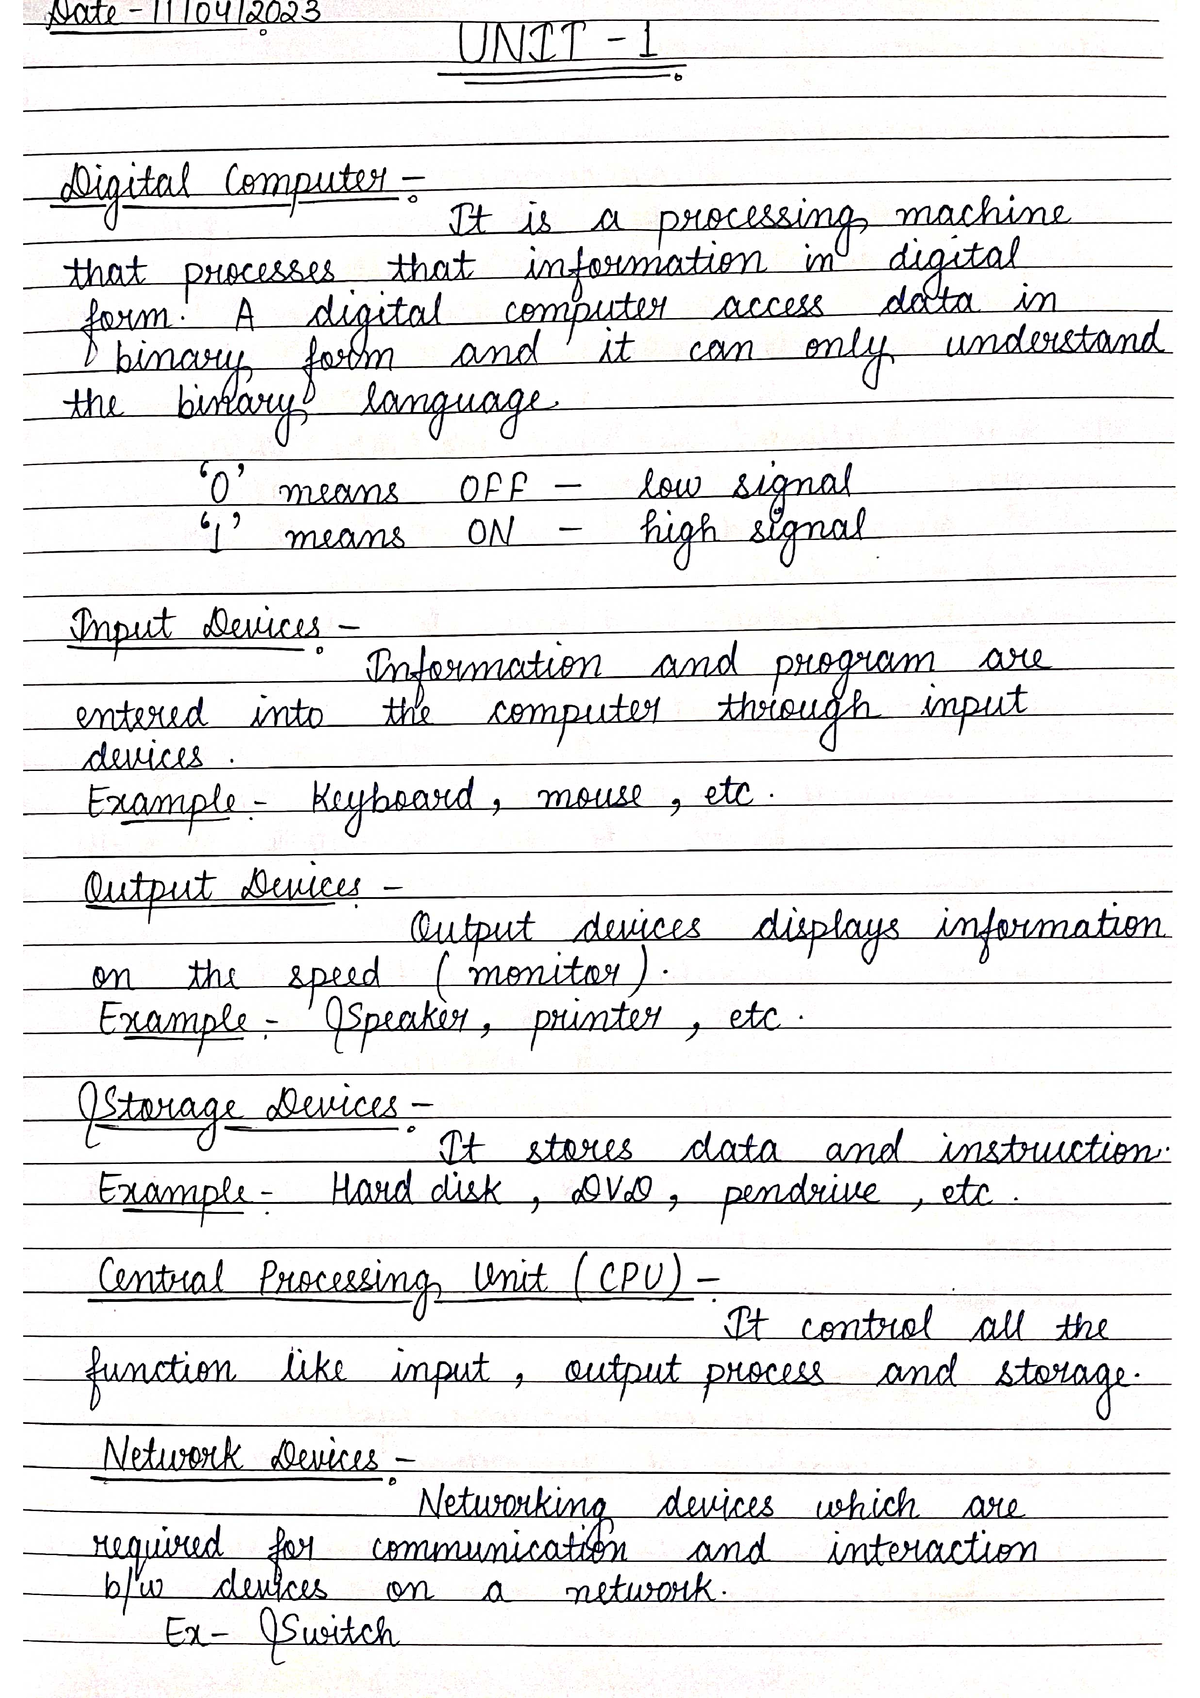 Date - 11/04/2023
UNIT - 1
Digital Computer -
It is a processing machine
that processes that information in digital
form. A digital computer access data in
binary form and it can only understand
the binary language.
'0' means OFF - low signal
'1' means ON - high signal
Input Devices -
Information and program are
entered into the computer through input
devices.
Example - Keyboard, mouse, etc.
Output Devices -
Output devices displays information
on the speed (monitor).
Example - Speaker, printer, etc.
Storage Devices -
It stores data and instruction.
Example - Hard disk, DVD, pendrive, etc.
Central Processing Unit (CPU) -
It control all the
function like input, output process and storage.
Network Devices -
Networking devices which are
required for communication and interaction
b/w devices on a network.
Ex - Switch